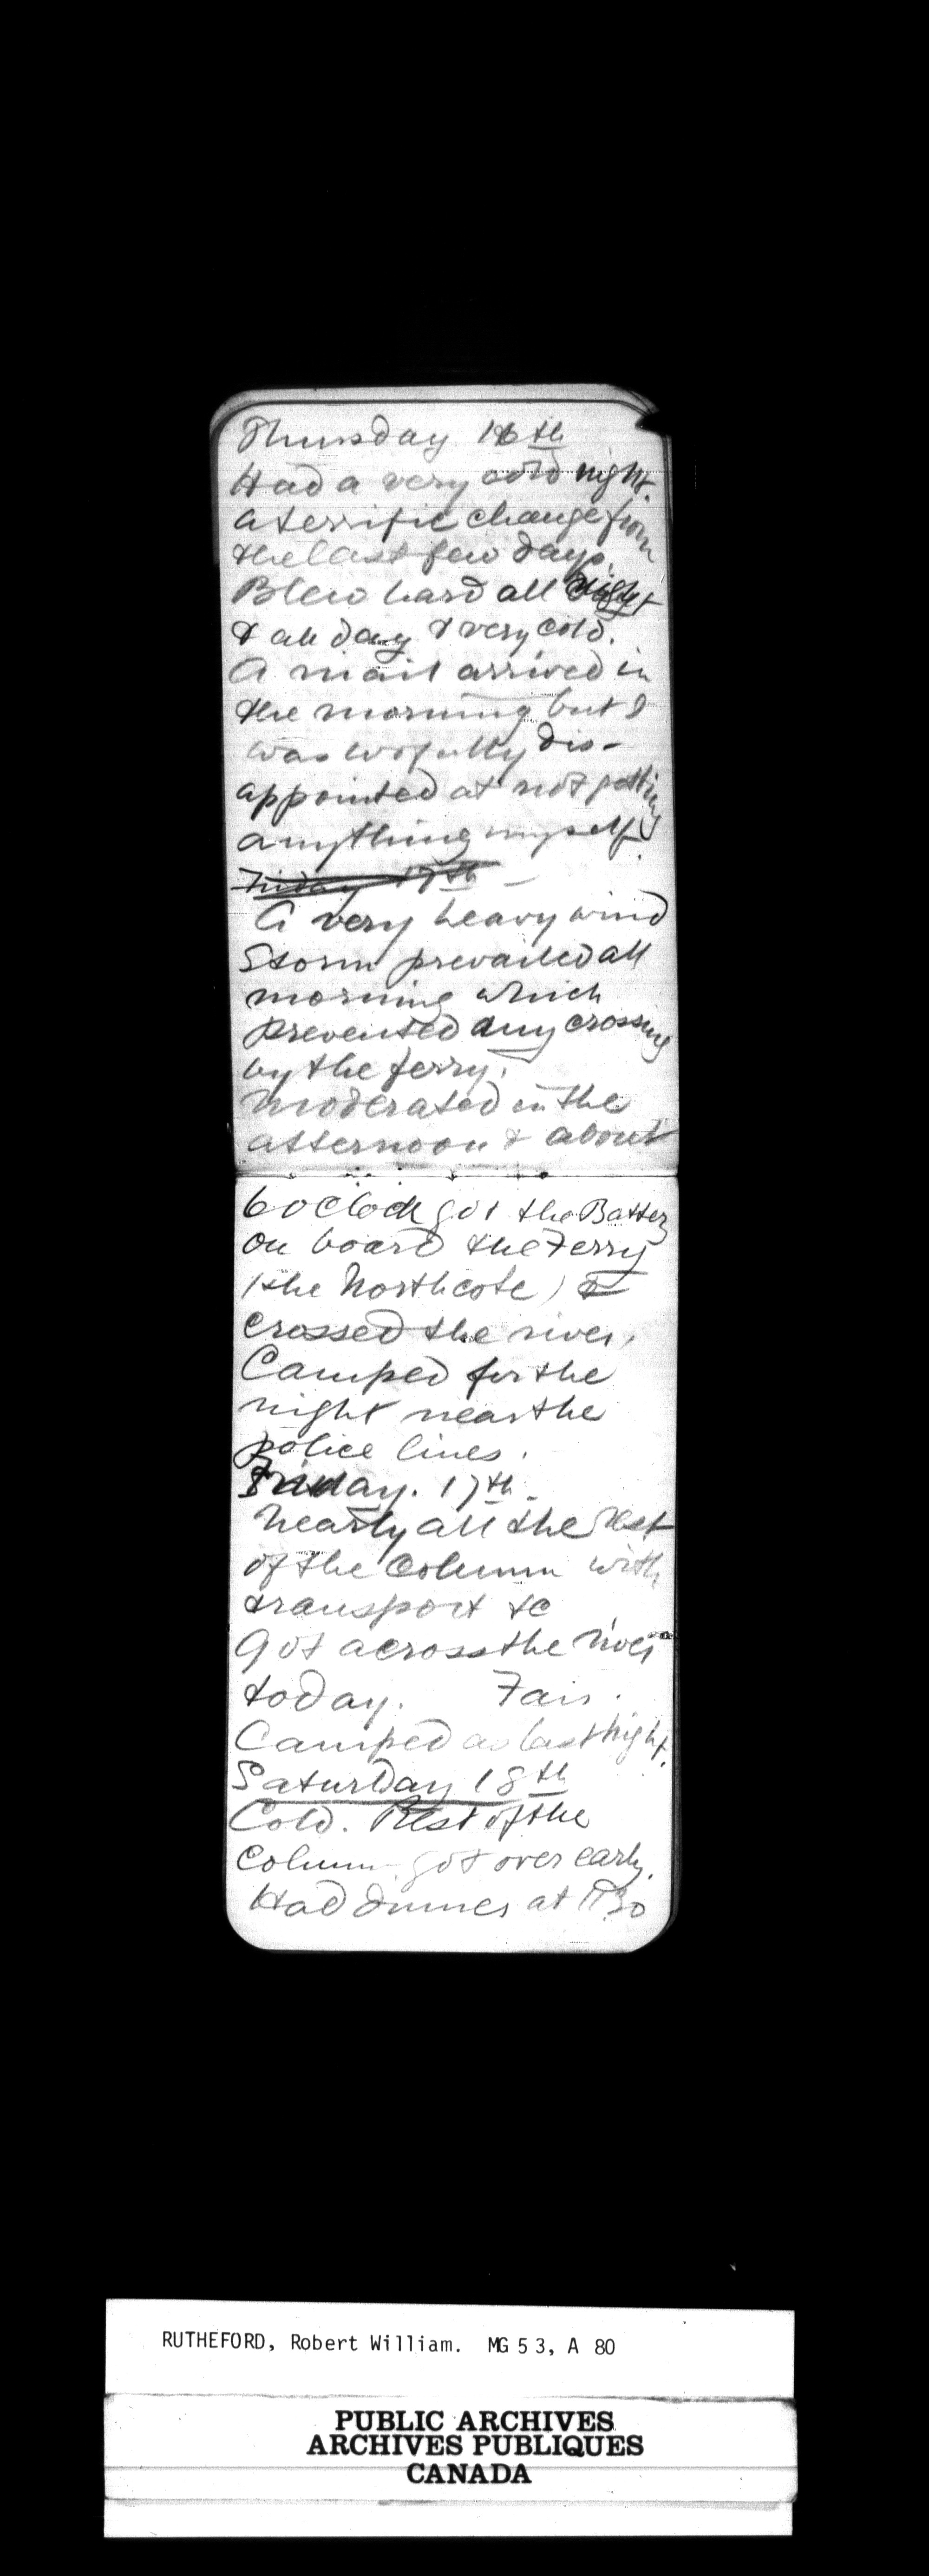 Thursday 16th
Had a very cold night.
a terrific change from
the last few days.
Blew hard all night
& all day & very cold.
A mail arrived in
the morning but I
was wofully dis-
appointed at not getting
anything myself.
Friday 17th -
A very heavy wind
Storm prevailed all
morning which
prevented any crossing
by the ferry.
Moderated in the
afternoon & about
6 oClock got the Battery
on board the Ferry
(the Northcote) &
crossed the river.
Camped for the
night near the
police lines.
Friday. 17th -
Nearly all the rest
of the Column with
transport &c
Got across the river
today. Fair.
Camped as last night.
Saturday 18th
Cold. Rest of the
Column got over early.
Had dinner at
RUTHEFORD, Robert William. MG 53, A 80
PUBLIC ARCHIVES
ARCHIVES PUBLIQUES
CANADA